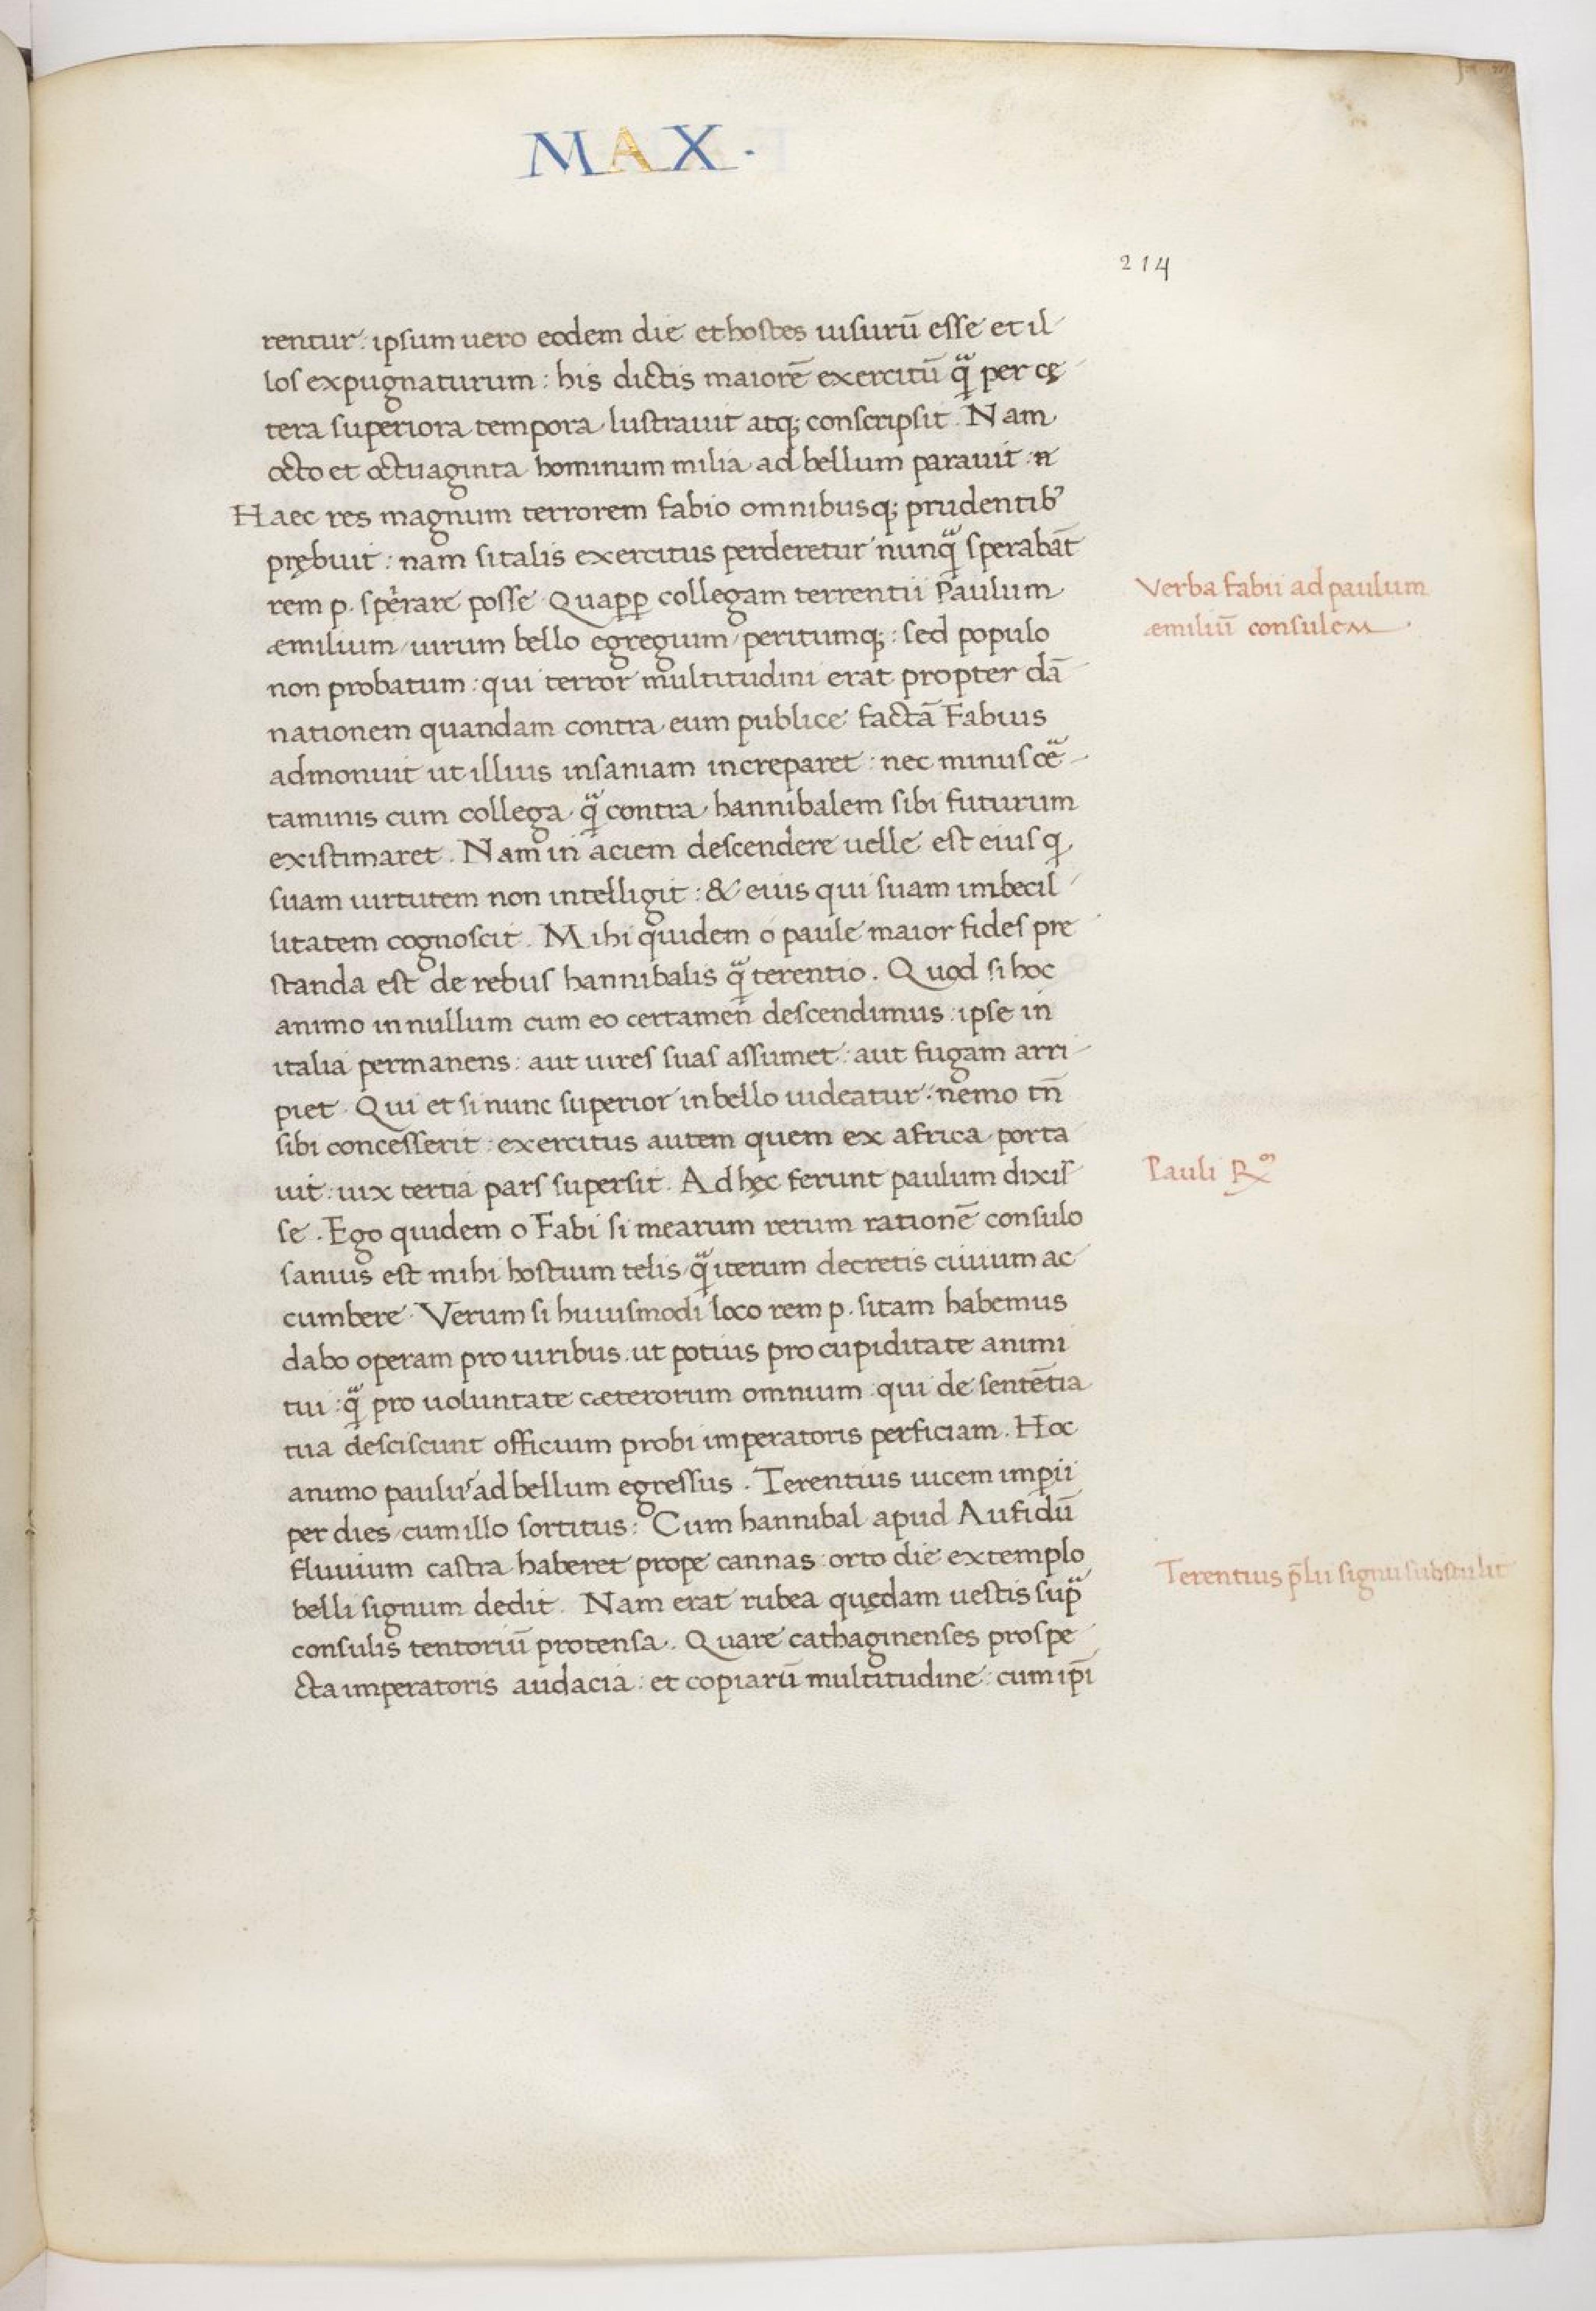 MAX·
214
rentur: ipsum uero eodem die et hostes uisurū esse et il
los expugnaturum: his dictis maiorē exercitū qͣ per cę
tera superiora tempora lustrauit atq; conscripsit. Nam
octo et octuaginta hominum milia ad bellum parauit:
Haec res magnum terrorem fabio omnibusq; prudentibꝰ
prębuit: nam si talis exercitus perderetur nunqͣ sperabāt
rem p. sperare posse. Quaꝓꝑ collegam terrentii Paulum
æmilium uirum bello egregium peritumq;: sed populo
non probatum: qui terror multitudini erat propter dā
nationem quandam contra eum publice factā Fabius
admonuit ut illius insaniam increparet: nec minus cē
taminis cum collega qͣ contra hannibalem sibi futurum
existimaret. Nam in aciem descendere uelle est eius q
suam uirtutem non intelligit: & eius qui suam imbecil
litatem cognoscit. Mihi quidem o paule maior fides pre
standa est de rebus hannibalis qͣ terentio. Quod si hoc
animo in nullum cum eo certamen descendimus: ipse in
italia permanens: aut uires suas assumet: aut fugam arri
piet. Qui et si nunc superior in bello uideatur: nemo tn̄
sibi concesserit: exercitus autem quem ex africa porta
uit: uix tertia pars supersit. Ad hęc ferunt paulum dixis
se. Ego quidem o Fabi si mearum rerum rationē consulo
sanius est mihi hostium telis qͣ iterum decretis ciuium ac
cumbere. Verum si huiusmodi loco rem p. sitam habemus
dabo operam pro uiribus. ut potius pro cupiditate animi
tui: qͣ pro uoluntate cæterorum omnium: qui de sentētia
tua desciscunt officium probi imperatoris perficiam. Hoc
animo paulus ad bellum egressus. Terentius uicem imꝑii
per dies cum illo sortitus: Cum hannibal apud Aufidū
fluuium castra haberet prope cannas: orto die extemplo
belli signum dedit. Nam erat rubea quędam uestis supͣ
consulis tentoriū protensa. Quare cathaginenses prospe
cta imperatoris audacia: et copiarū multitudine: cum ip̄i
Verba fabii ad paulum
æmiliū consulem
Pauli ℞
Terentius p̄lii signū substulit